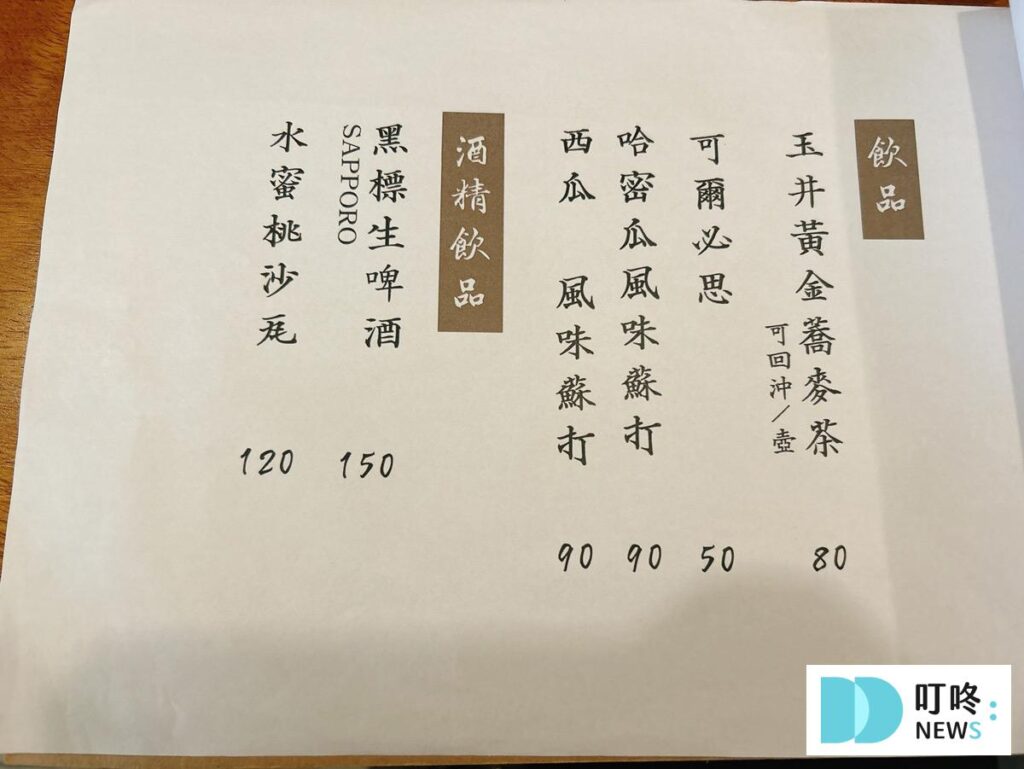 飲品
玉井黃金蕎麥茶
可回沖/壺
80
可爾必思
50
哈密瓜風味蘇打
90
西瓜 風味蘇打
90
酒精飲品
黑標生啤酒
SAPPORO
150
水蜜桃沙瓦
120
叮咚
NEWS